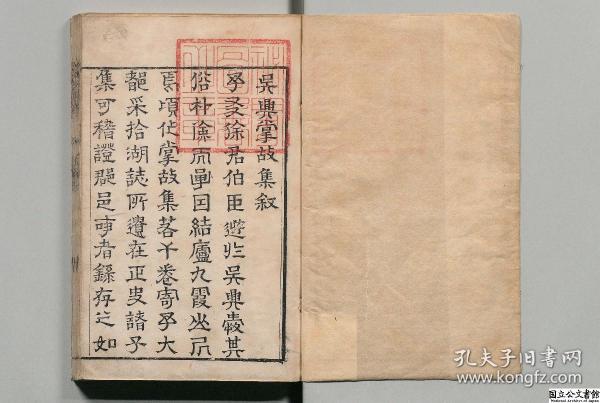 吳興掌故集叙
予友徐君伯臣遊於吳興其
俗朴儉而因結廬九霞山凥
焉頃作掌故集若干卷寄予大
都采拾湖誌所遺在正史諸子
集可稽證郡邑事者錄存之如
孔夫子旧書网
www.kongfz.com
国立公文書館
National Archives of Japan